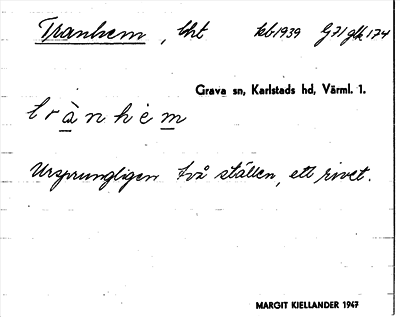 Tranhem, lht kb1939 G71 glk 174
Grava sn, Karlstads hd, Värml. l.
trànhèm
Ursprungligen två ställen, ett rivet.
MARGIT KJELLANDER 1947